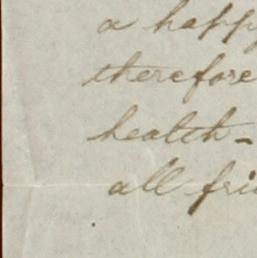 a happy
therefore
health-
all fri